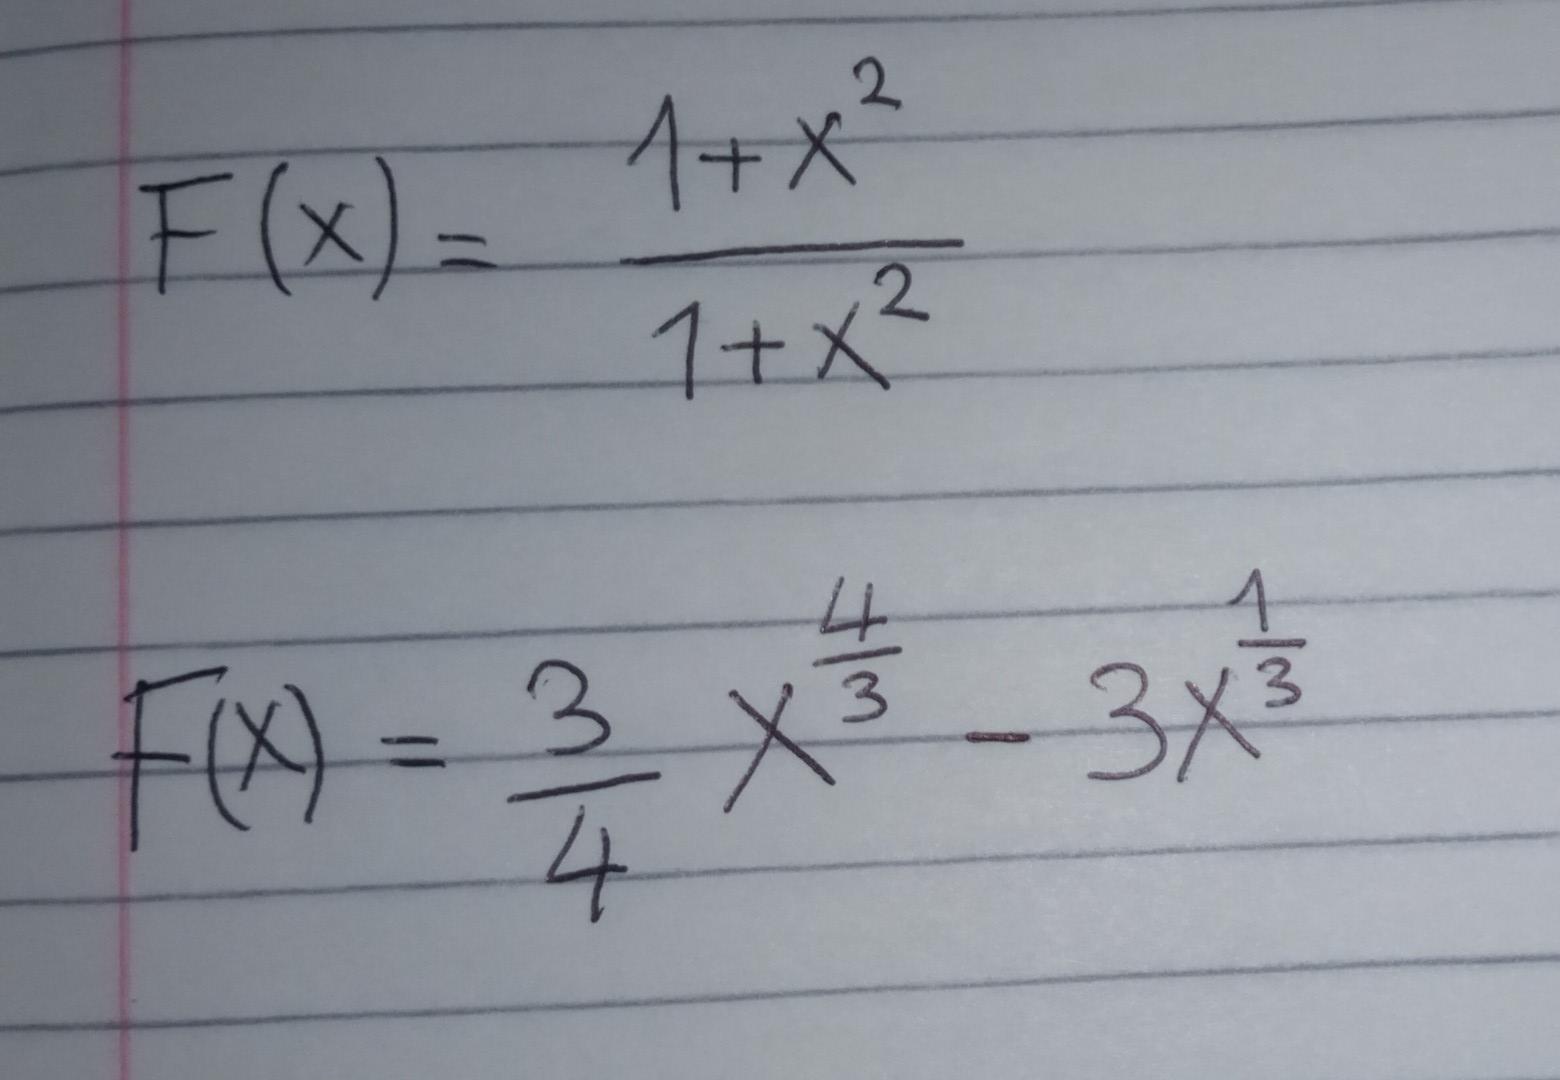 F(x) = (1+x²)/(1+x²)
F(x) = 3/4 x^(4/3) - 3x^(1/3)